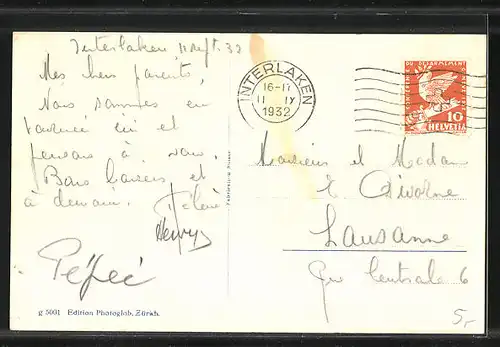 Interlaken 11 Sept. 32
Mes chers parents,
Nous sommes en
tournée ici et
pensons à vous.
Bons baisers et
à demain.
Henry
g 5001 Edition Photoglob, Zürich.
INTERLAKEN
16-17
11 IX
1932
DU DÉSARMEMENT
10
HELVETIA
Monsieur et Madame
E. Divorne
Lausanne
Rue Centrale 6
5,-